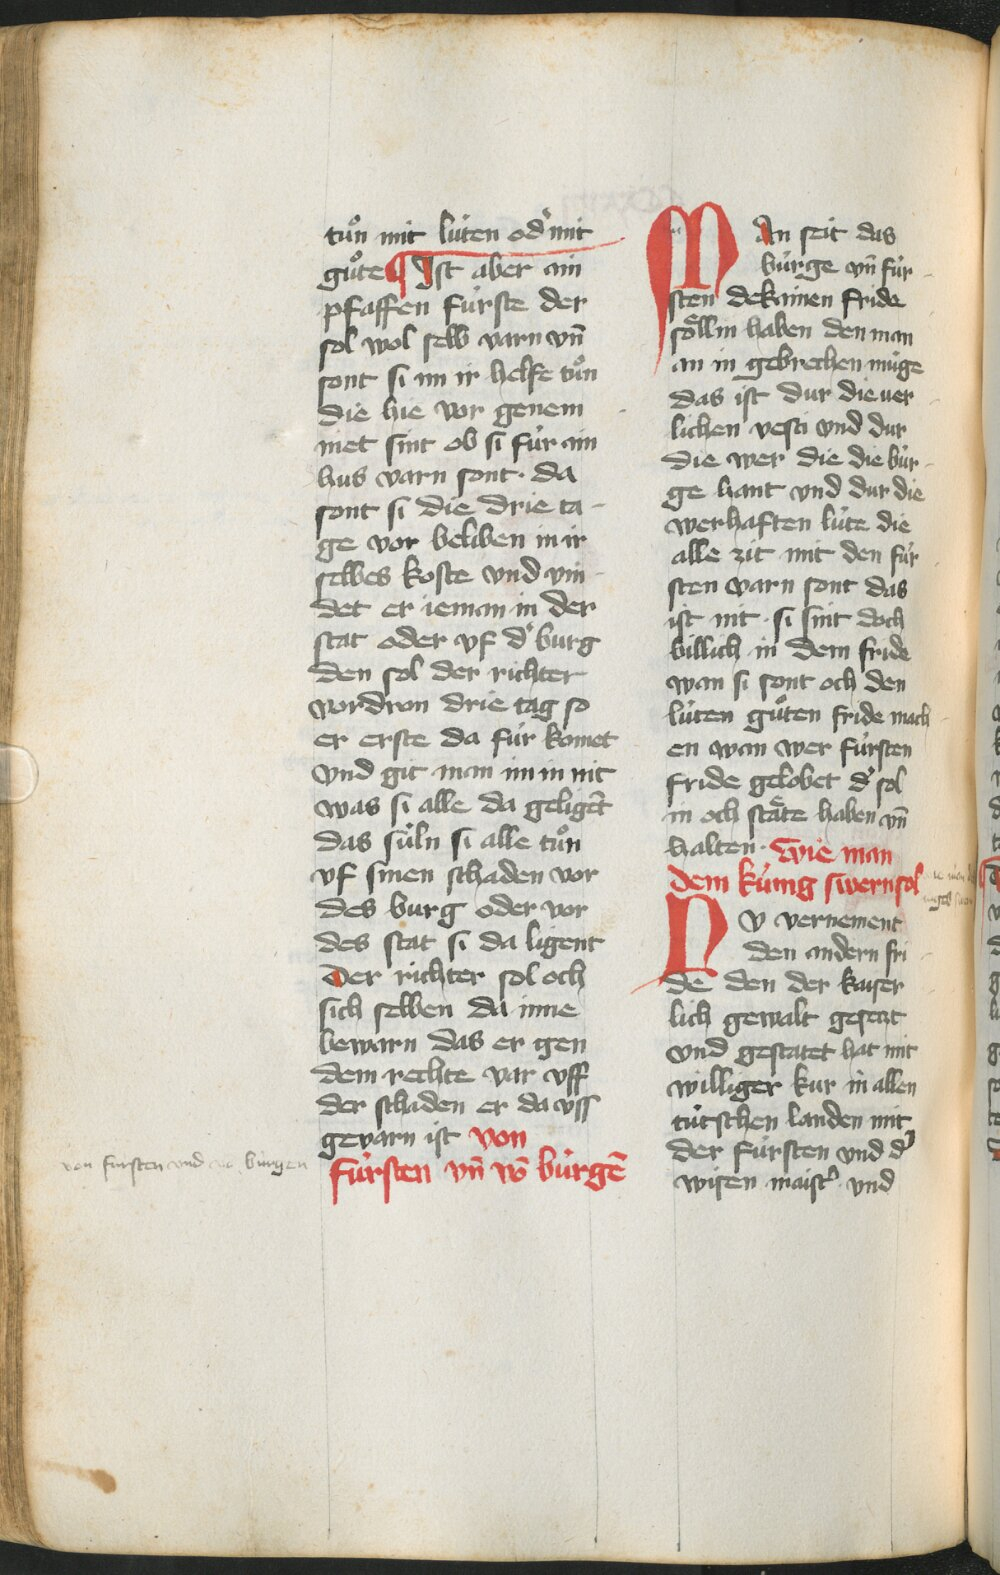 tuͦn mit lúten od' mit
guͦte ¶ Ist aber ain
pfaffen fúrste der
sol wol selb varn vn̄
sont si im ir helfe tuͦn
die hie vor genem
met sint ob si fúr ain
hus varn sont · da
sont si die drie ta-
ge vor beliben in ir
selbes koste vnd vin-
det er ieman in der
stat oder vf d' burg
den sol der richter
vordron drie tag so
er erste da fúr komet
vnd git man im in nit
was si alle da geligēt
das súln si alle tuͦn
vf sinen schaden vor
des burg oder vor
des stat si da ligent
Der richter sol och
sich selben da inne
bewarn das er gen
dem rechte var vff
der schaden er da vss
gevarn ist von
fúrsten vn̄ vō búrgē
von fursten vnd vō burgen
Man seit das
búrge vn̄ fúr-
sten dekainen fride
soͤllin haben den man
an in gebrechen múge
das ist dur die wer
lichen vesti vnd dur
die wer die die búr-
ge hant vnd dur die
werhaften lúte die
alle zit mit den fúr-
sten varn sont das
ist nit · si sint doch
billich in dem fride
wan si sont och den
lúten guͦten fride mach-
en wan wer fúrsten
fride gelobet d' sol
in och staͤte haben vn̄
halten · wie man
dem kúnig swern sol
NV vernement
den andern fri-
de den der kaiser
lich gewalt gesetzt
vnd gestatet hat mit
williger kur in allen
tútschen landen mit
der fúrsten vnd d'
wisen maist' vnd